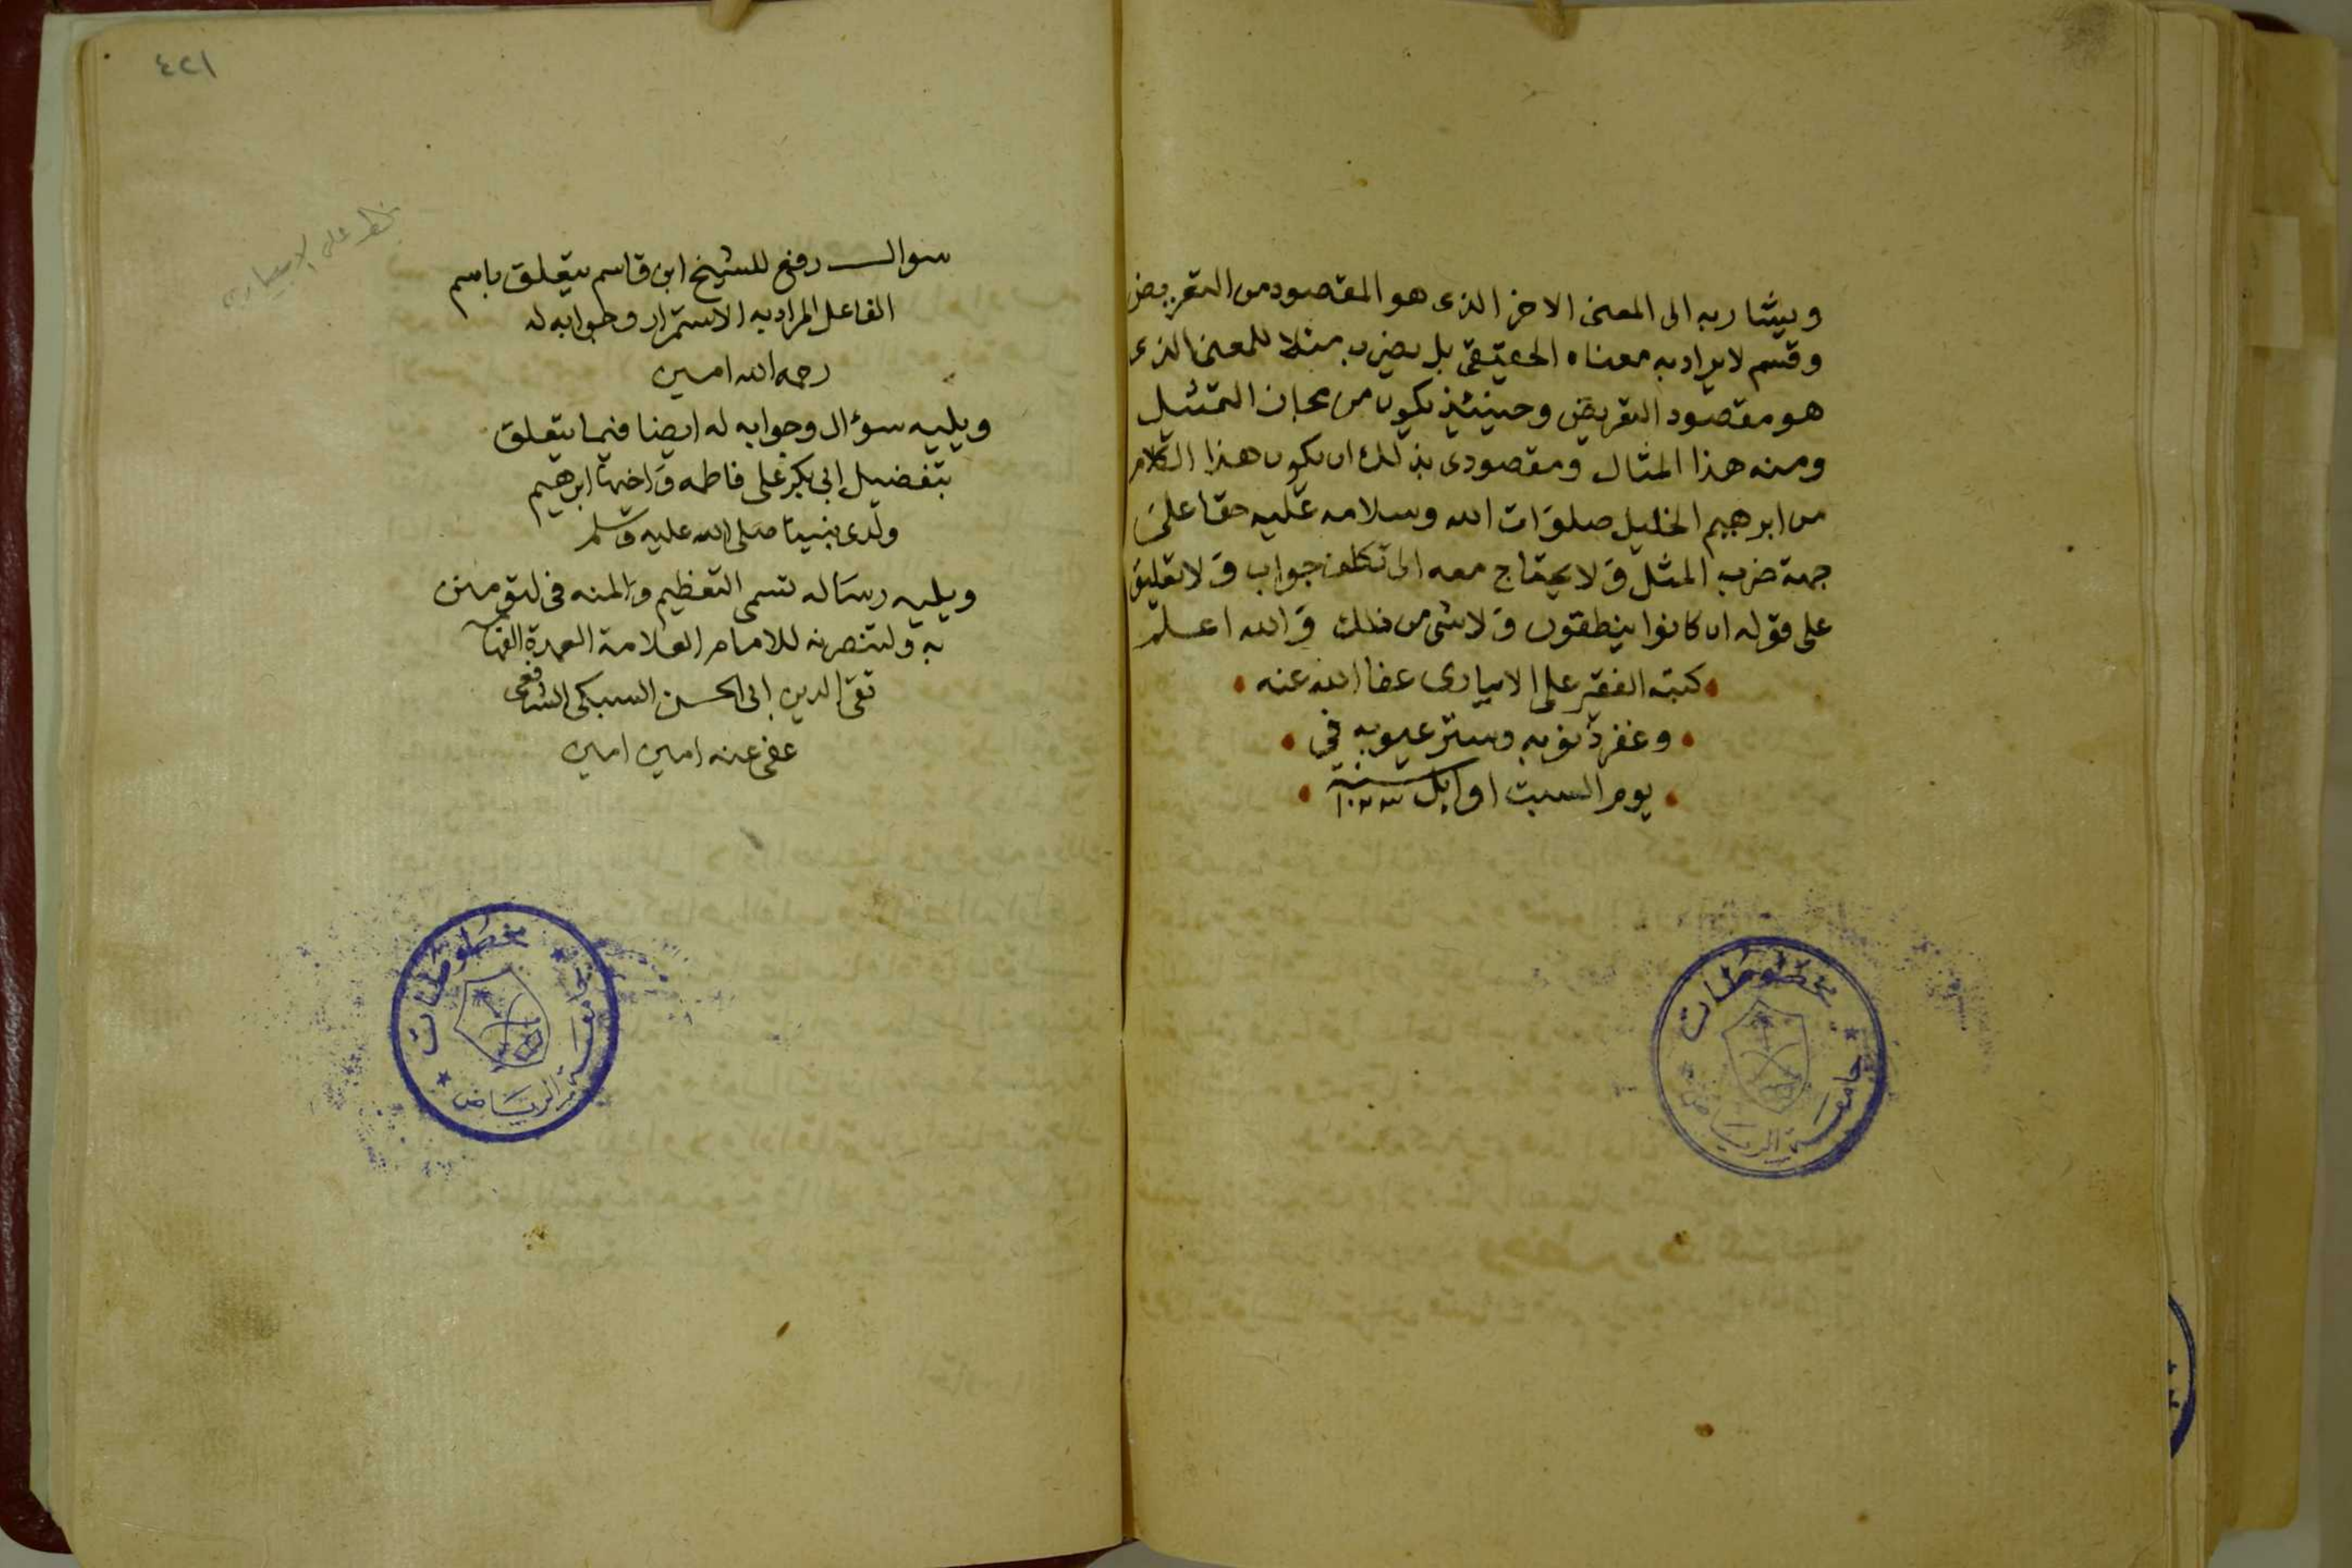 ويشار به الى المعنى الاخر الذى هو المقصود من التعريض
وقسم لا يراد به معناه الحقيقى بل يضرب مثلا للمعنى الذى
هو مقصود التعريض وحينئذ يكون من مجاز التمثيل
ومنه هذا المثال ومقصودى بذلك ان يكون هذا الكلام
من ابرهيم الخليل صلوات الله وسلامه عليه حقا على
جهة ضرب المثل ولا يحتاج معه الى تكلف جواب ولا تعليق
على قوله ان كانوا ينطقون ولا شى من ذلك والله اعلم
كتبه الفقير على الابيارى عفا الله عنه
وغفر ذنوبه وستر عيوبه في
يوم السبت اوايل سنة ١٠٣٣
مخطوطات
جامعة الرياض
٤٢١
بخط على الابيارى
سوال رفع للشيخ ابن قاسم يتعلق باسم
الفاعل المراد به الاستمرار وجوابه له
رحمه الله امين
ويليه سؤال وجوابه له ايضا فيما يتعلق
بتفضيل ابى بكر على فاطمه واخيها ابرهيم
ولدى نبينا صلى الله عليه وسلم
ويليه رساله تسمى التعظيم والمنه فى لتؤمنن
به ولتنصرنه للامام العلامة العمدة الفهامه
تقى الدين ابى الحسن السبكى الشافعى
عفى عنه امين امين
مخطوطات
جامعة الرياض